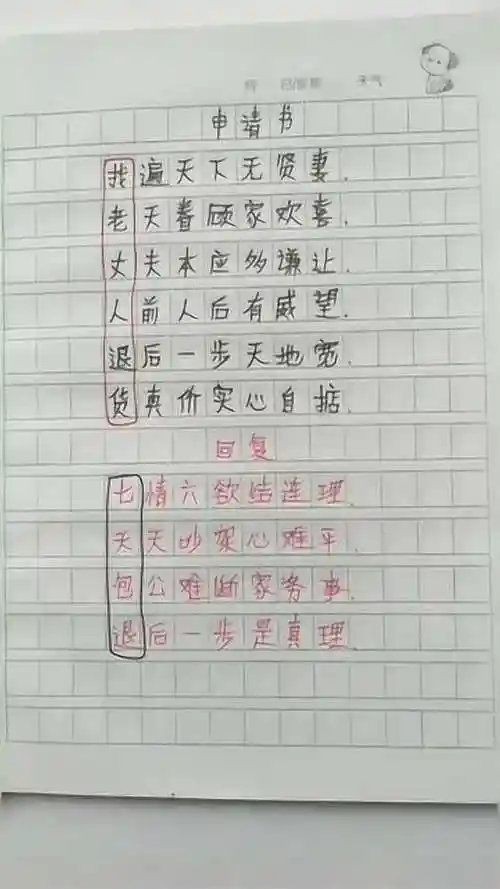 日期 天气
申请书
找遍天下无贤妻.
老天眷顾家欢喜.
丈夫本应多谦让.
人前人后有威望.
退后一步天地宽.
货真价实心自掂.
回复
七情六欲结连理.
天天吵架心难平.
包公难断家务事.
退后一步是真理.